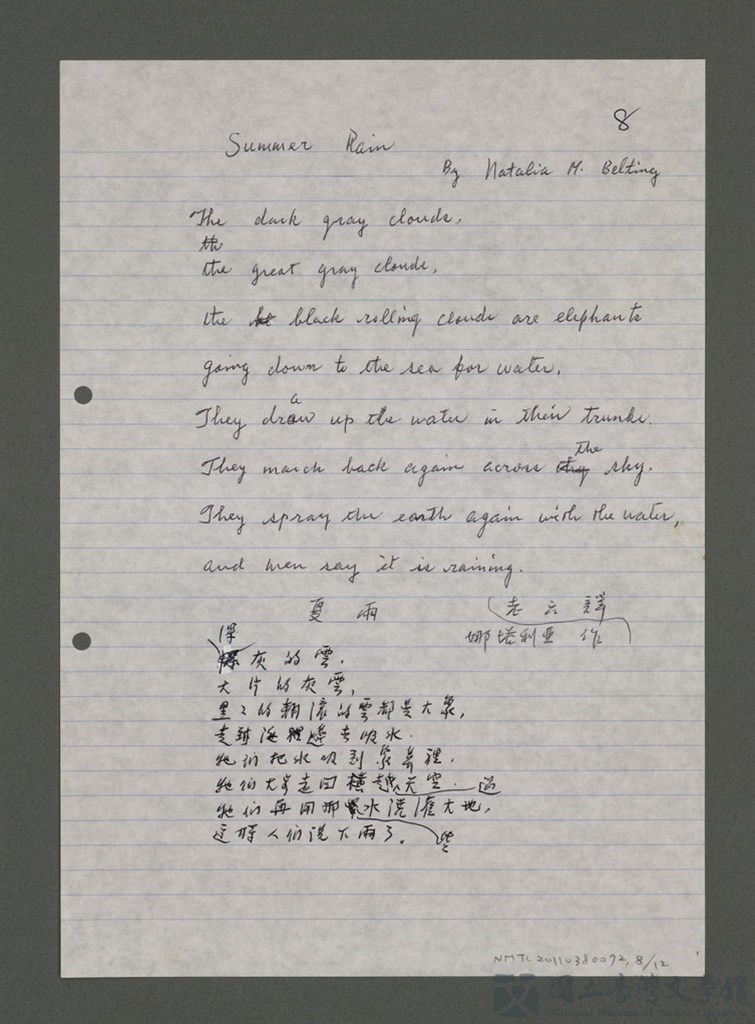 8
Summer Rain
By Natalia M. Belting
The dark gray clouds,
th
the great gray clouds,
the black rolling clouds are elephants
going down to the sea for water.
They draw up the water in their trunks.
They march back again across the sky.
They spray the earth again with the water,
and men say it is raining.
夏雨
老六譯
娜塔利亞 作
深灰的雲,
大片的灰雲,
黑々的翻滾的雲都是大象,
走到海邊去吸水.
牠們把水吸到象鼻裡.
牠們大步走回橫越過天空.
牠們再用那些水澆灌大地,
這時人们説下雨了。
NMTL20110380072, 8/12
國立臺灣文學館
National Museum of Taiwan Literature